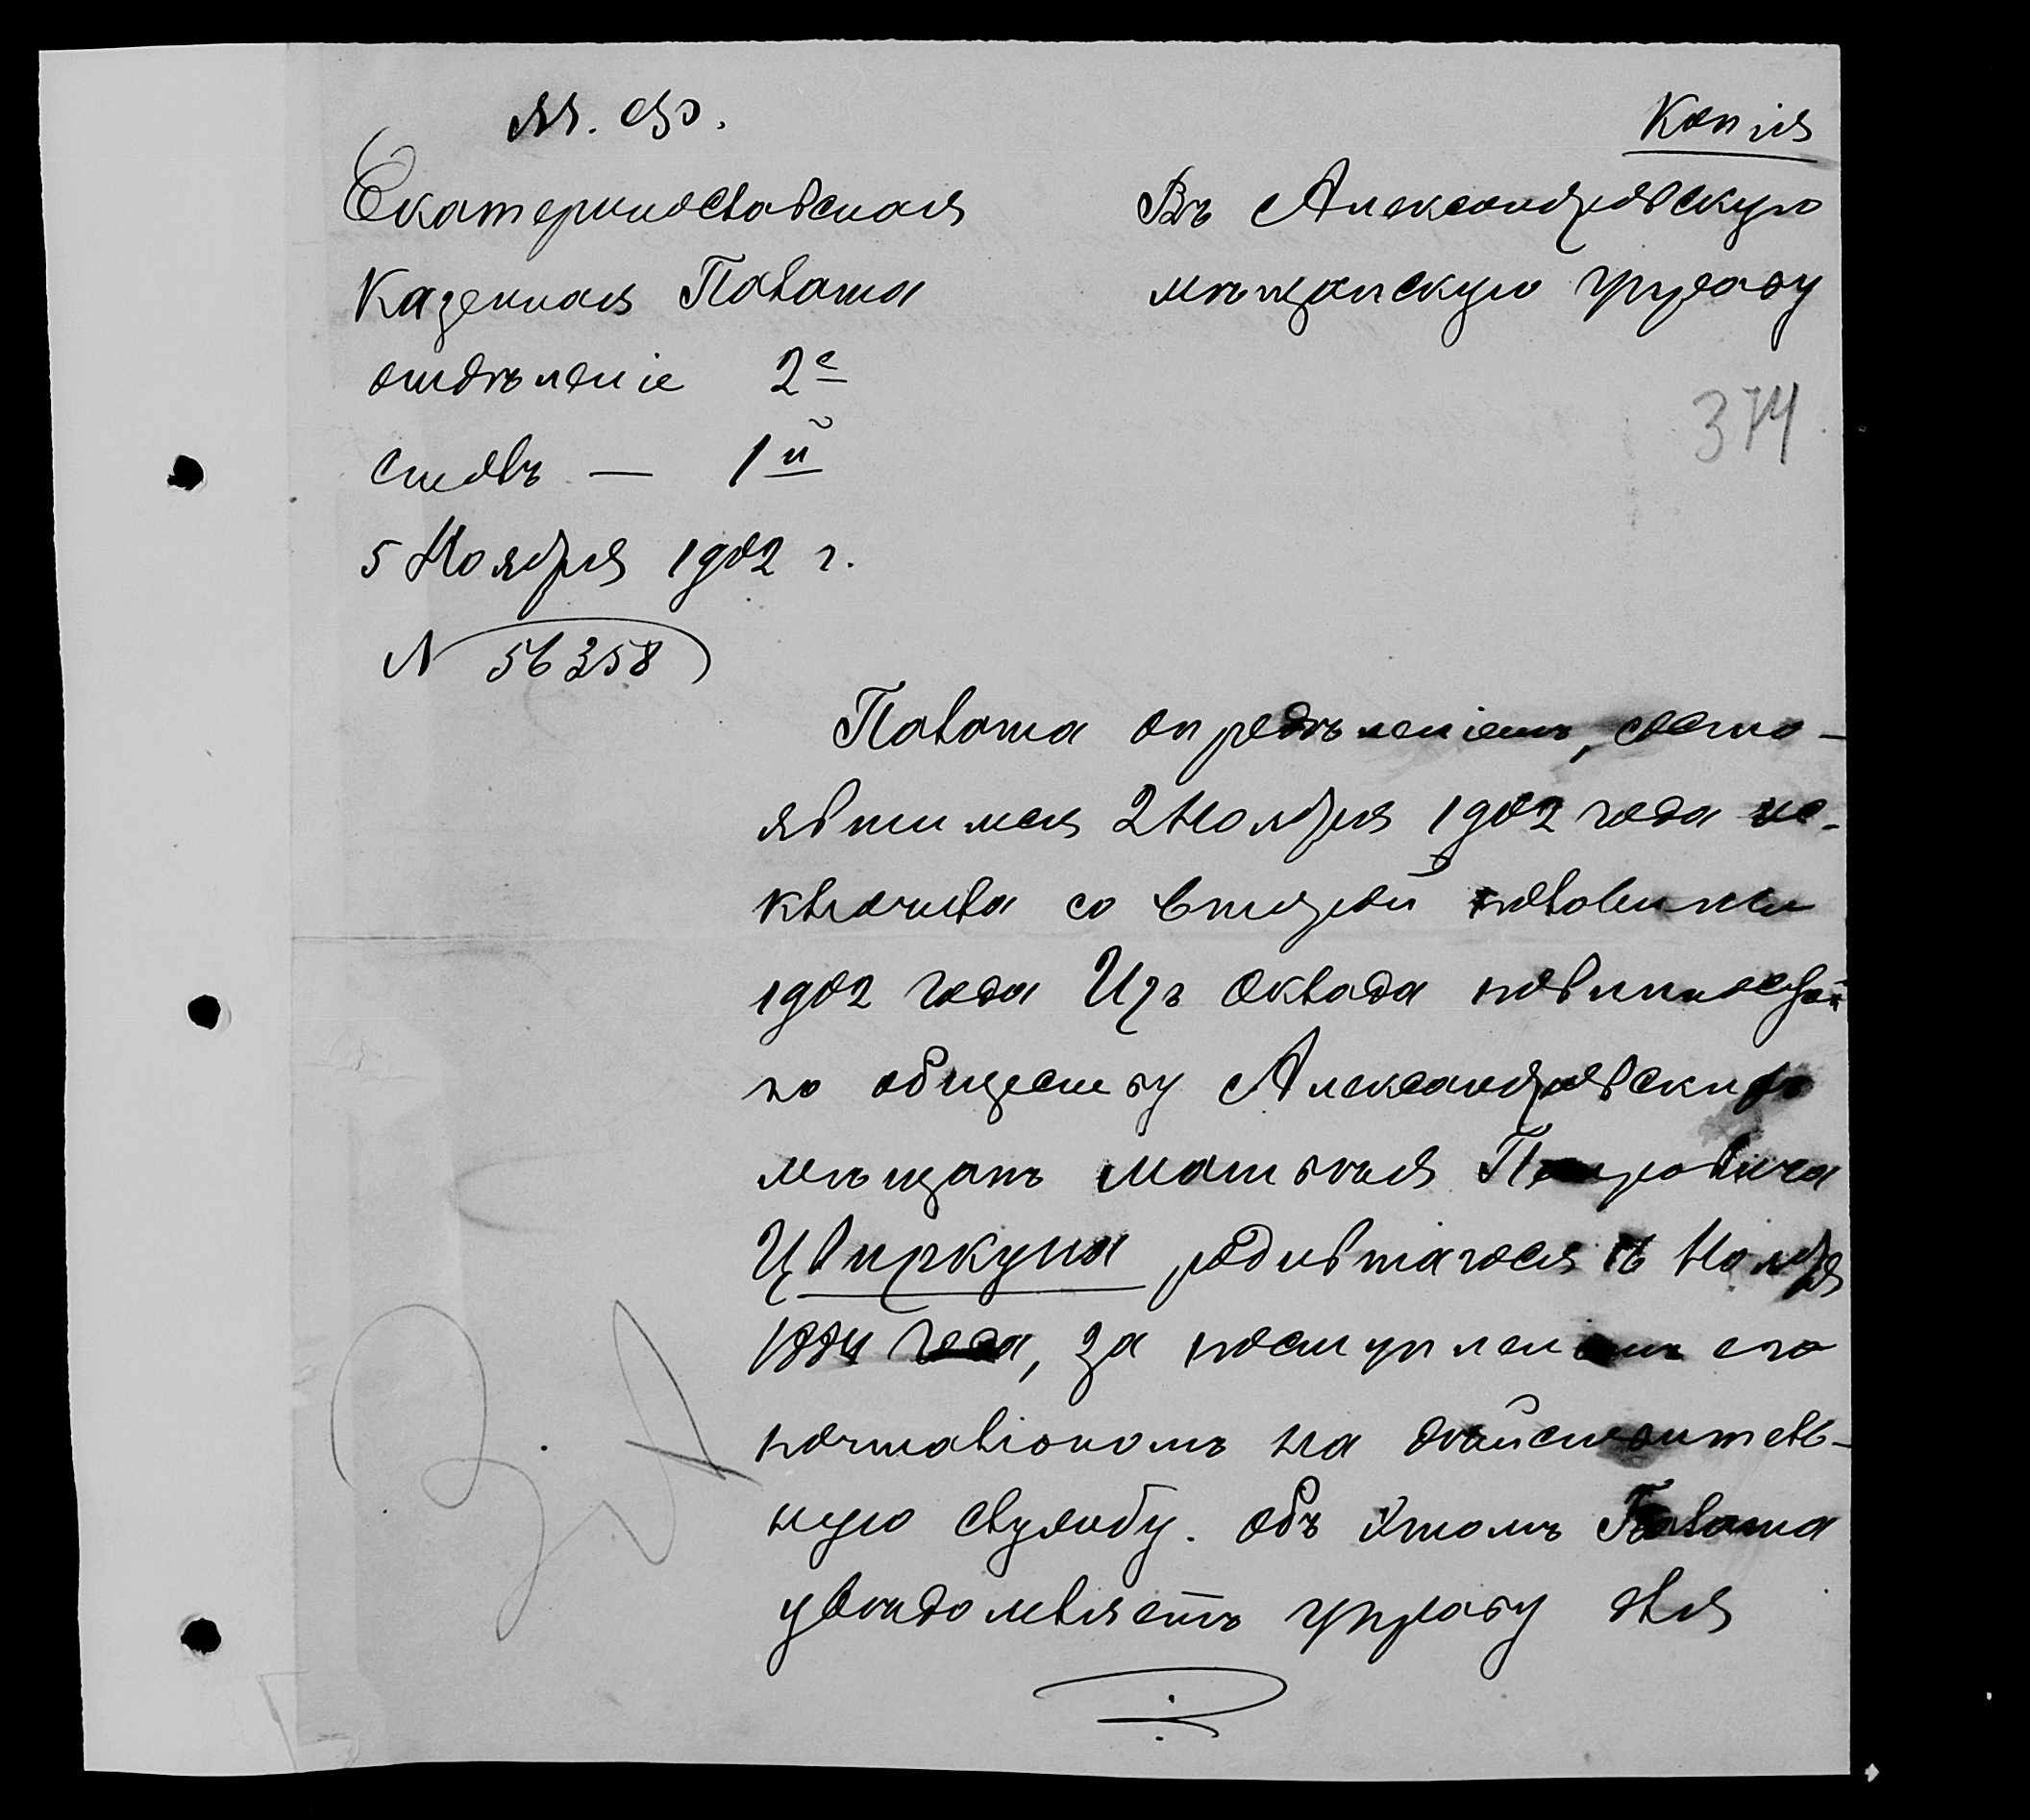 М. Ф.
Копія
Екатеринославская
Казенная Палата
отдѣленіе 2е
столъ — 1й
5 Ноября 1902 г.
N 56358
Въ Александровскую
мѣщанскую управу
374
Палата опредѣленіемъ, состо-
явшимся 2 Ноября 1902 года ис-
ключила со второй половины
1902 года Изъ оклада повинностей
по обществу Александровскихъ
мѣщанъ Матвѣя Петровича
Цвиркуна родившагося 16 Ноября
года, за поступленіемъ его
почталіономъ на дѣйствитель-
ную службу. Объ этомъ Палата
увѣдомляетъ управу для